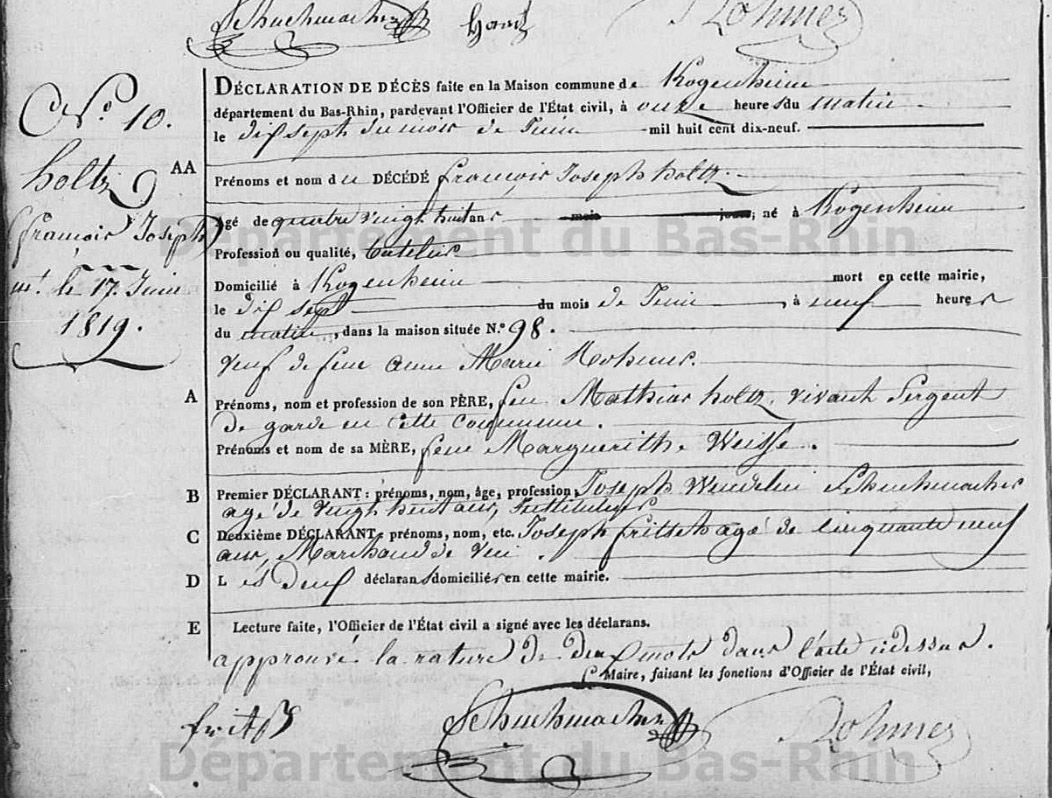 Schuhmacher
Rohmer
N.º 10.
holtz
François Joseph
m.t le 17. Juin
1819.
DÉCLARATION DE DÉCÈS faite en la Maison commune de Kogenheim
département du Bas-Rhin, pardevant l'Officier de l'État civil, à onze heures du matin
le dix sept du mois de Juin mil huit cent dix-neuf.
AA Prénoms et nom du DÉCÉDÉ françois Joseph holtz.
Agé de quatre vingt huit ans mois jours; né à Kogenheim
Profession ou qualité,
Domicilié à Kogenheim mort en cette mairie,
le dix sept du mois de Juin, à neuf heures
du matin, dans la maison située N.º 98.
veuf de feue anne Marie Rohmer.
A Prénoms, nom et profession de son PÈRE, feu Mathias holtz, vivant Sergent
de garde en cette commune.
Prénoms et nom de sa MÈRE, feue Marguerithe Weisse.
B Premier DÉCLARANT: prénoms, nom, âge, profession Joseph Wendelin Schuhmacher
agé de vingt huit ans, Instituteur
C Deuxième DÉCLARANT, prénoms, nom, etc. Joseph fritsch agé de cinquante neuf
ans, Marchand de vin.
D Les deux déclarans domiciliés en cette mairie.
E Lecture faite, l'Officier de l'État civil a signé avec les déclarans.
approuvé la rature de deux mots dans l'acte cidessus.
Maire, faisant les fonctions d'Officier de l'État civil,
fritsch
Schuhmacher
Rohmer
Département du Bas-Rhin
Département du Bas-Rhin